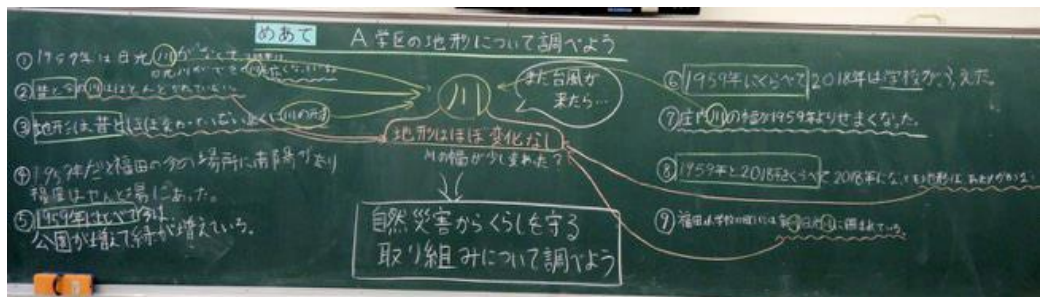 めあて A学区の地形について調べよう
① 1959年は日光川がなくて
② 昔と今の川はほとんどかわっていない。
③ 地形は昔とほぼ変わっていない 近くに川の
④ 1959年だと福田の多の場所に南陽があり
福屋はせんと場にあった。
⑤ 1959年にくらべて今は
公園が増えて緑が増えている。
川
また台風が
来たら…
地形はほぼ変化なし
川の幅が少し変わった?
自然災害からくらしを守る
取り組みについて調べよう
⑥ 1959年にくらべて2018年は学校がふえた。
⑦ 庄内川の幅が1959年よりせまくなった。
⑧ 1959年と2018年をくらべて2018年になっても地形は
⑨ 福田小学校の周りには 日光川に囲まれている。